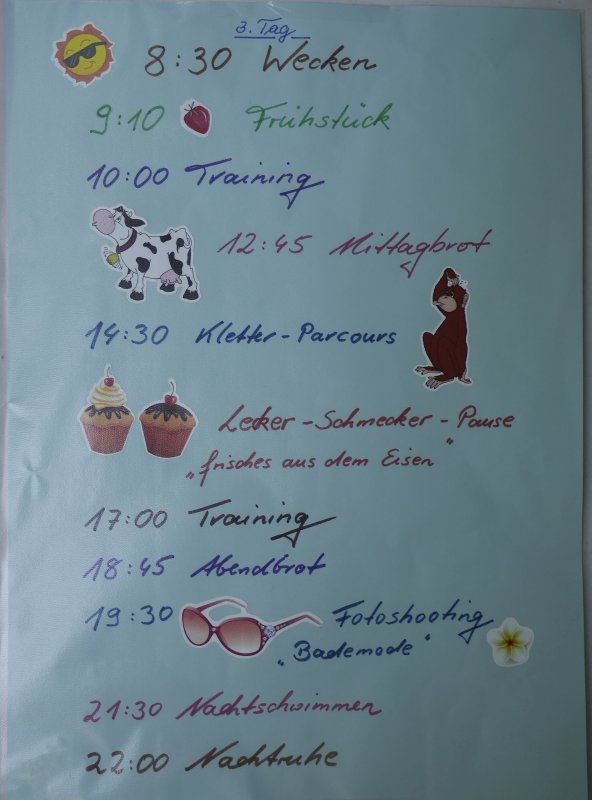 3. Tag
8:30 Wecken
9:10 Frühstück
10:00 Training
12:45 Mittagbrot
14:30 Kletter-Parcours
Lecker-Schmecker-Pause
„frisches aus dem Eisen"
17:00 Training
18:45 Abendbrot
19:30 Fotoshooting
„Bademode"
21:30 Nachtschwimmen
22:00 Nachtruhe